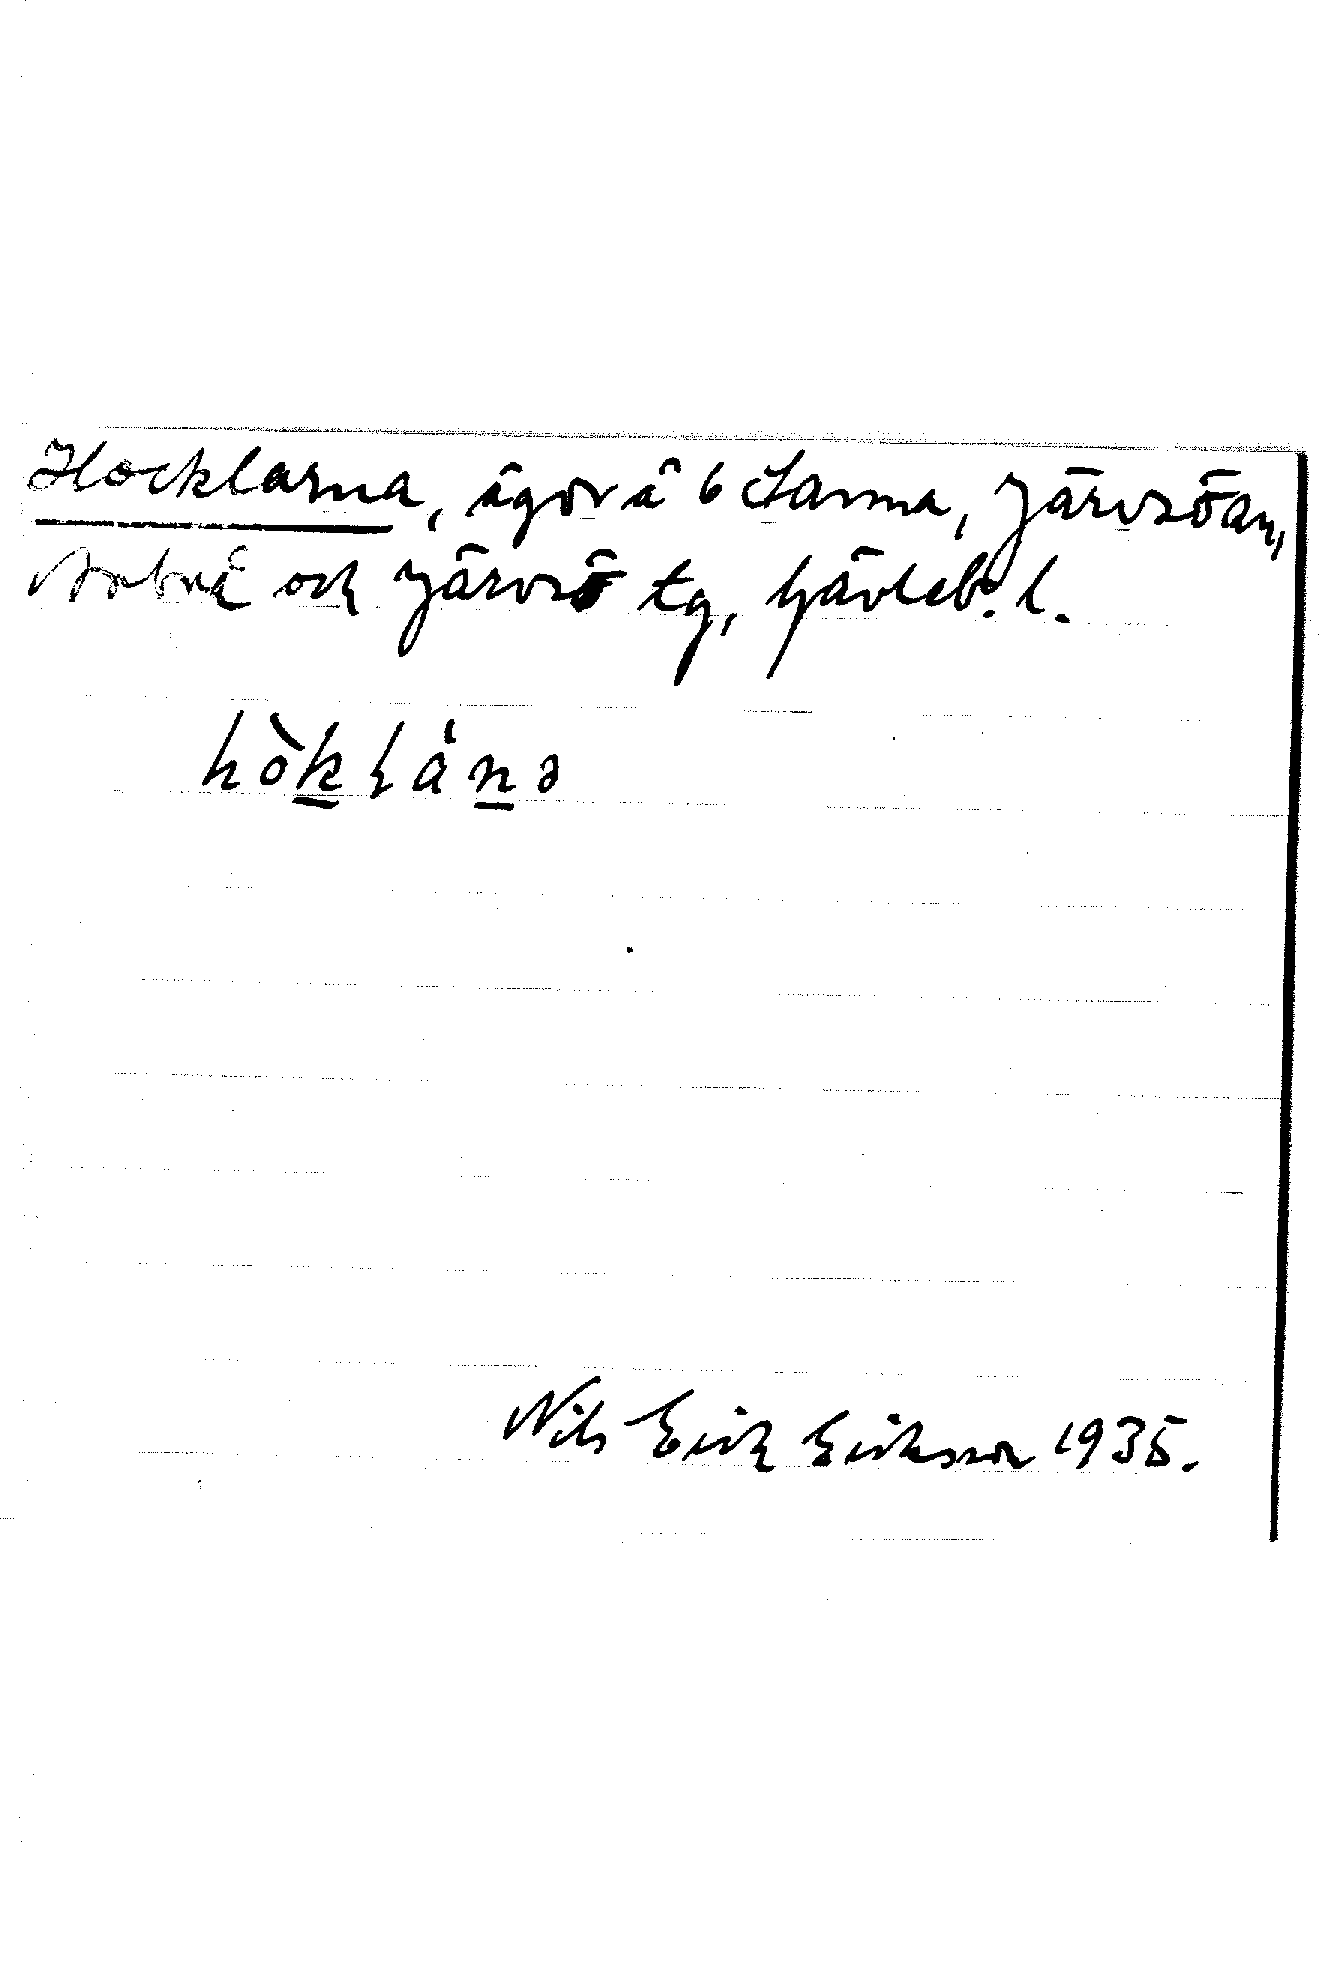 Hocklarna, ägor å 6 Sanna, Järvsöan,
och Järvsö tg, Gävleb. l.
Nils Erik Eriksson 1935.